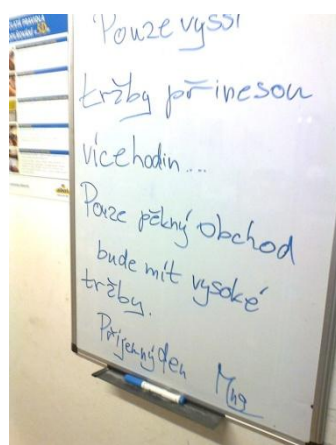 Pouze vyšší
tržby přinesou
více hodin...
Pouze pěkný obchod
bude mít vysoké
tržby.
Příjemný den Mng